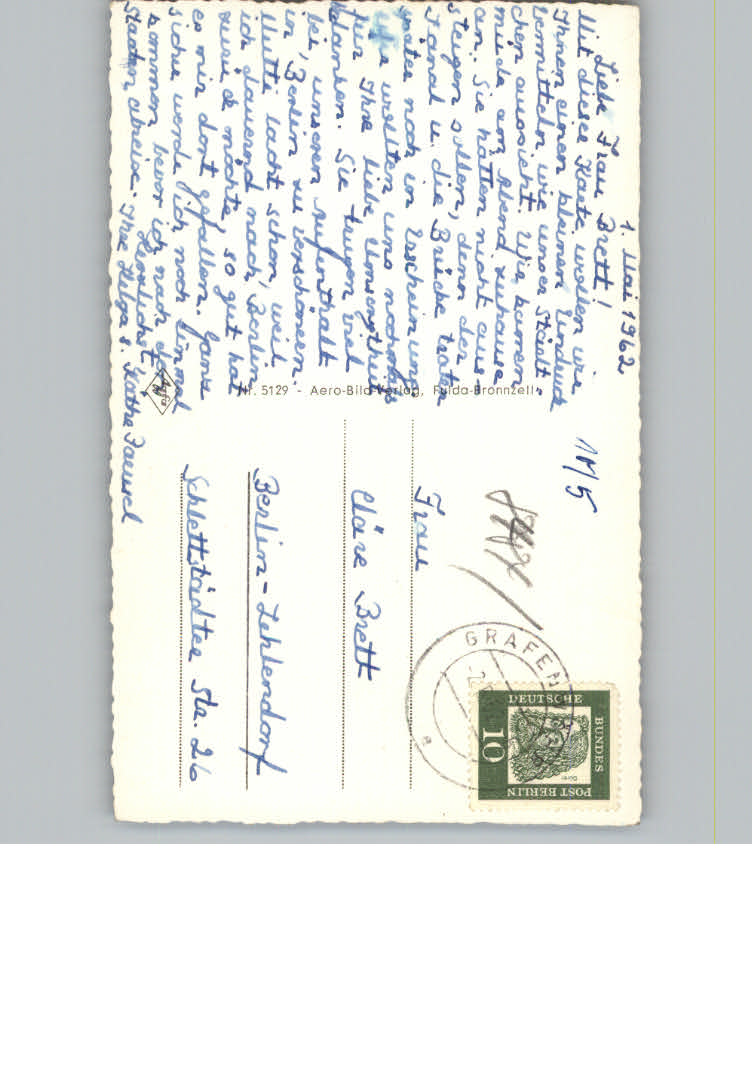 1. Mai 1962
Liebe Frau Brett!
Mit dieser Karte wollen wir
Ihnen einen kleinen Eindruck
vermitteln wie unser Städt-
chen aussieht. Wir kamen
müde am Abend zuhause
an. Sie hätten nicht aus
steigen sollen, denn der
Tänd u. die Brücke traten
später noch in Erscheinung
wollten uns nochmals
für Ihre liebe
danken. Sie trugen viel
bei, unseren Aufenthalt
in Berlin zu verschönern.
Mutti lacht schon, weil
ich dauernd nach Berlin
möchte, so gut hat
es mir dort gefallen. Ganz
sicher werde ich noch einmal
kommen bevor ich nach den
Staaten abreise. Herzlichst
Ihre Helga u. Käthe
Agfa
Nr. 5129 - Aero-Bild-Verlag, Fulda-Bronnzell
11/5
Frau
Cläre Brett
Berlin-Zehlendorf
Schlettstädter Str. 26
GRAFEN
DEUTSCHE
BUNDES
POST BERLIN
10
Dürer